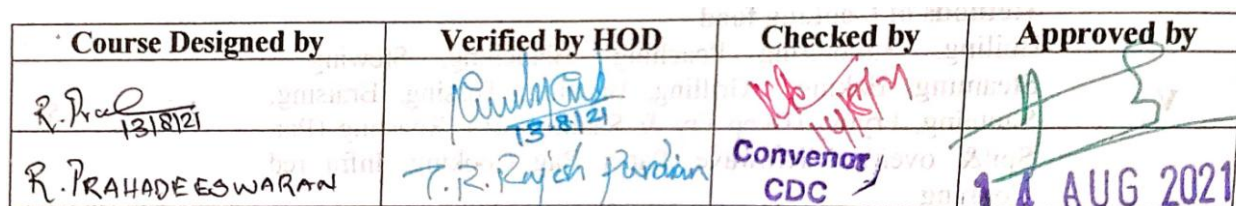 Course Designed by Verified by HOD Checked by Approved by
R. 13/8/21 13/8/21 14/8/21
R. PRAHADEESWARAN T.R. Rajesh Pandian Convenor CDC 14 AUG 2021